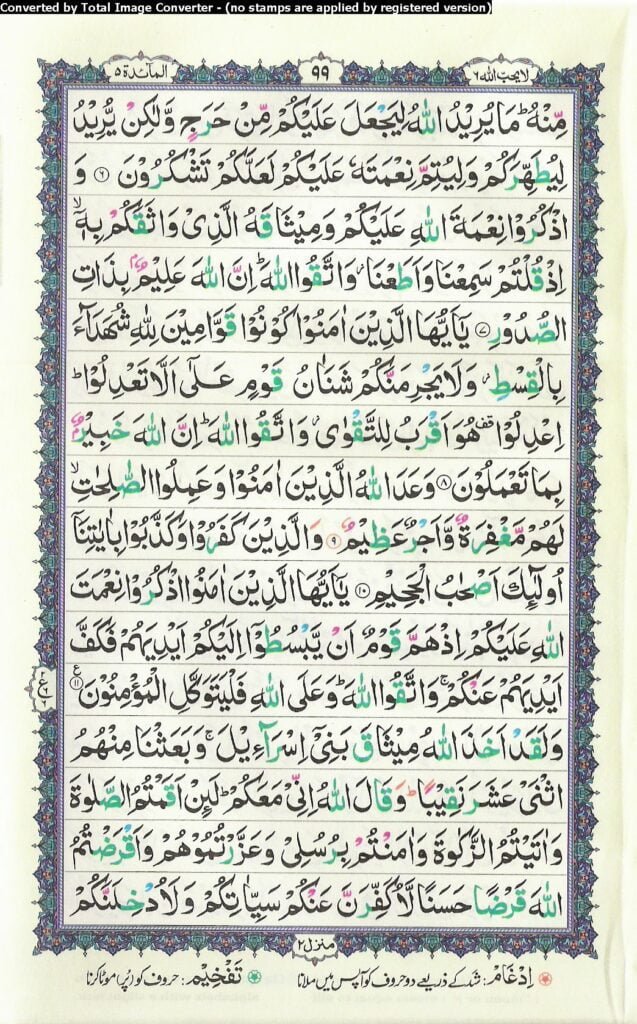 Converted by Total Image Converter - (no stamps are applied by registered version)
لايحب الله ٦
٩٩
المآئدة ٥
مِّنْهُ ؕ مَا يُرِيْدُ اللّٰهُ لِيَجْعَلَ عَلَيْكُمْ مِّنْ حَرَجٍ وَّلٰكِنْ يُّرِيْدُ
لِيُطَهِّرَكُمْ وَلِيُتِمَّ نِعْمَتَهٗ عَلَيْكُمْ لَعَلَّكُمْ تَشْكُرُوْنَ ۶ وَ
اذْكُرُوْا نِعْمَةَ اللّٰهِ عَلَيْكُمْ وَمِيْثَاقَهُ الَّذِىْ وَاثَقَكُمْ بِهٖۤ ۙ
اِذْ قُلْتُمْ سَمِعْنَا وَاَطَعْنَا ؗ وَاتَّقُوا اللّٰهَ ؕ اِنَّ اللّٰهَ عَلِيْمٌۢ بِذَاتِ
الصُّدُوْرِ ۷ يٰۤاَيُّهَا الَّذِيْنَ اٰمَنُوْا كُوْنُوْا قَوَّامِيْنَ لِلّٰهِ شُهَدَآءَ
بِالْقِسْطِ ؗ وَلَا يَجْرِمَنَّكُمْ شَنَاٰنُ قَوْمٍ عَلٰٓى اَلَّا تَعْدِلُوْا ؕ
اِعْدِلُوْا قف هُوَ اَقْرَبُ لِلتَّقْوٰى ؗ وَاتَّقُوا اللّٰهَ ؕ اِنَّ اللّٰهَ خَبِيْرٌۢ
بِمَا تَعْمَلُوْنَ ۸ وَعَدَ اللّٰهُ الَّذِيْنَ اٰمَنُوْا وَعَمِلُوا الصّٰلِحٰتِ ۙ
لَهُمْ مَّغْفِرَةٌ وَّاَجْرٌ عَظِيْمٌ ۹ وَالَّذِيْنَ كَفَرُوْا وَكَذَّبُوْا بِاٰيٰتِنَاۤ
اُولٰٓئِكَ اَصْحٰبُ الْجَحِيْمِ ۱۰ يٰۤاَيُّهَا الَّذِيْنَ اٰمَنُوا اذْكُرُوْا نِعْمَتَ
اللّٰهِ عَلَيْكُمْ اِذْ هَمَّ قَوْمٌ اَنْ يَّبْسُطُوْۤا اِلَيْكُمْ اَيْدِيَهُمْ فَكَفَّ
اَيْدِيَهُمْ عَنْكُمْ ۚ وَاتَّقُوا اللّٰهَ ؕ وَعَلَى اللّٰهِ فَلْيَتَوَكَّلِ الْمُؤْمِنُوْنَ ۱۱ ع
وَلَقَدْ اَخَذَ اللّٰهُ مِيْثَاقَ بَنِىْۤ اِسْرَآءِيْلَ ۚ وَبَعَثْنَا مِنْهُمُ
اثْنَىْ عَشَرَ نَقِيْبًا ؕ وَقَالَ اللّٰهُ اِنِّىْ مَعَكُمْ ؕ لَئِنْ اَقَمْتُمُ الصَّلٰوةَ
وَاٰتَيْتُمُ الزَّكٰوةَ وَاٰمَنْتُمْ بِرُسُلِىْ وَعَزَّرْتُمُوْهُمْ وَاَقْرَضْتُمُ
اللّٰهَ قَرْضًا حَسَنًا لَّاُكَفِّرَنَّ عَنْكُمْ سَيِّاٰتِكُمْ وَلَاُدْخِلَنَّكُمْ
منزل ۲
اِدْغَام: شد کے ذریعے دو حروف کو آپس میں ملانا تَفْخِیْم: حروف کو پُر موٹا کرنا